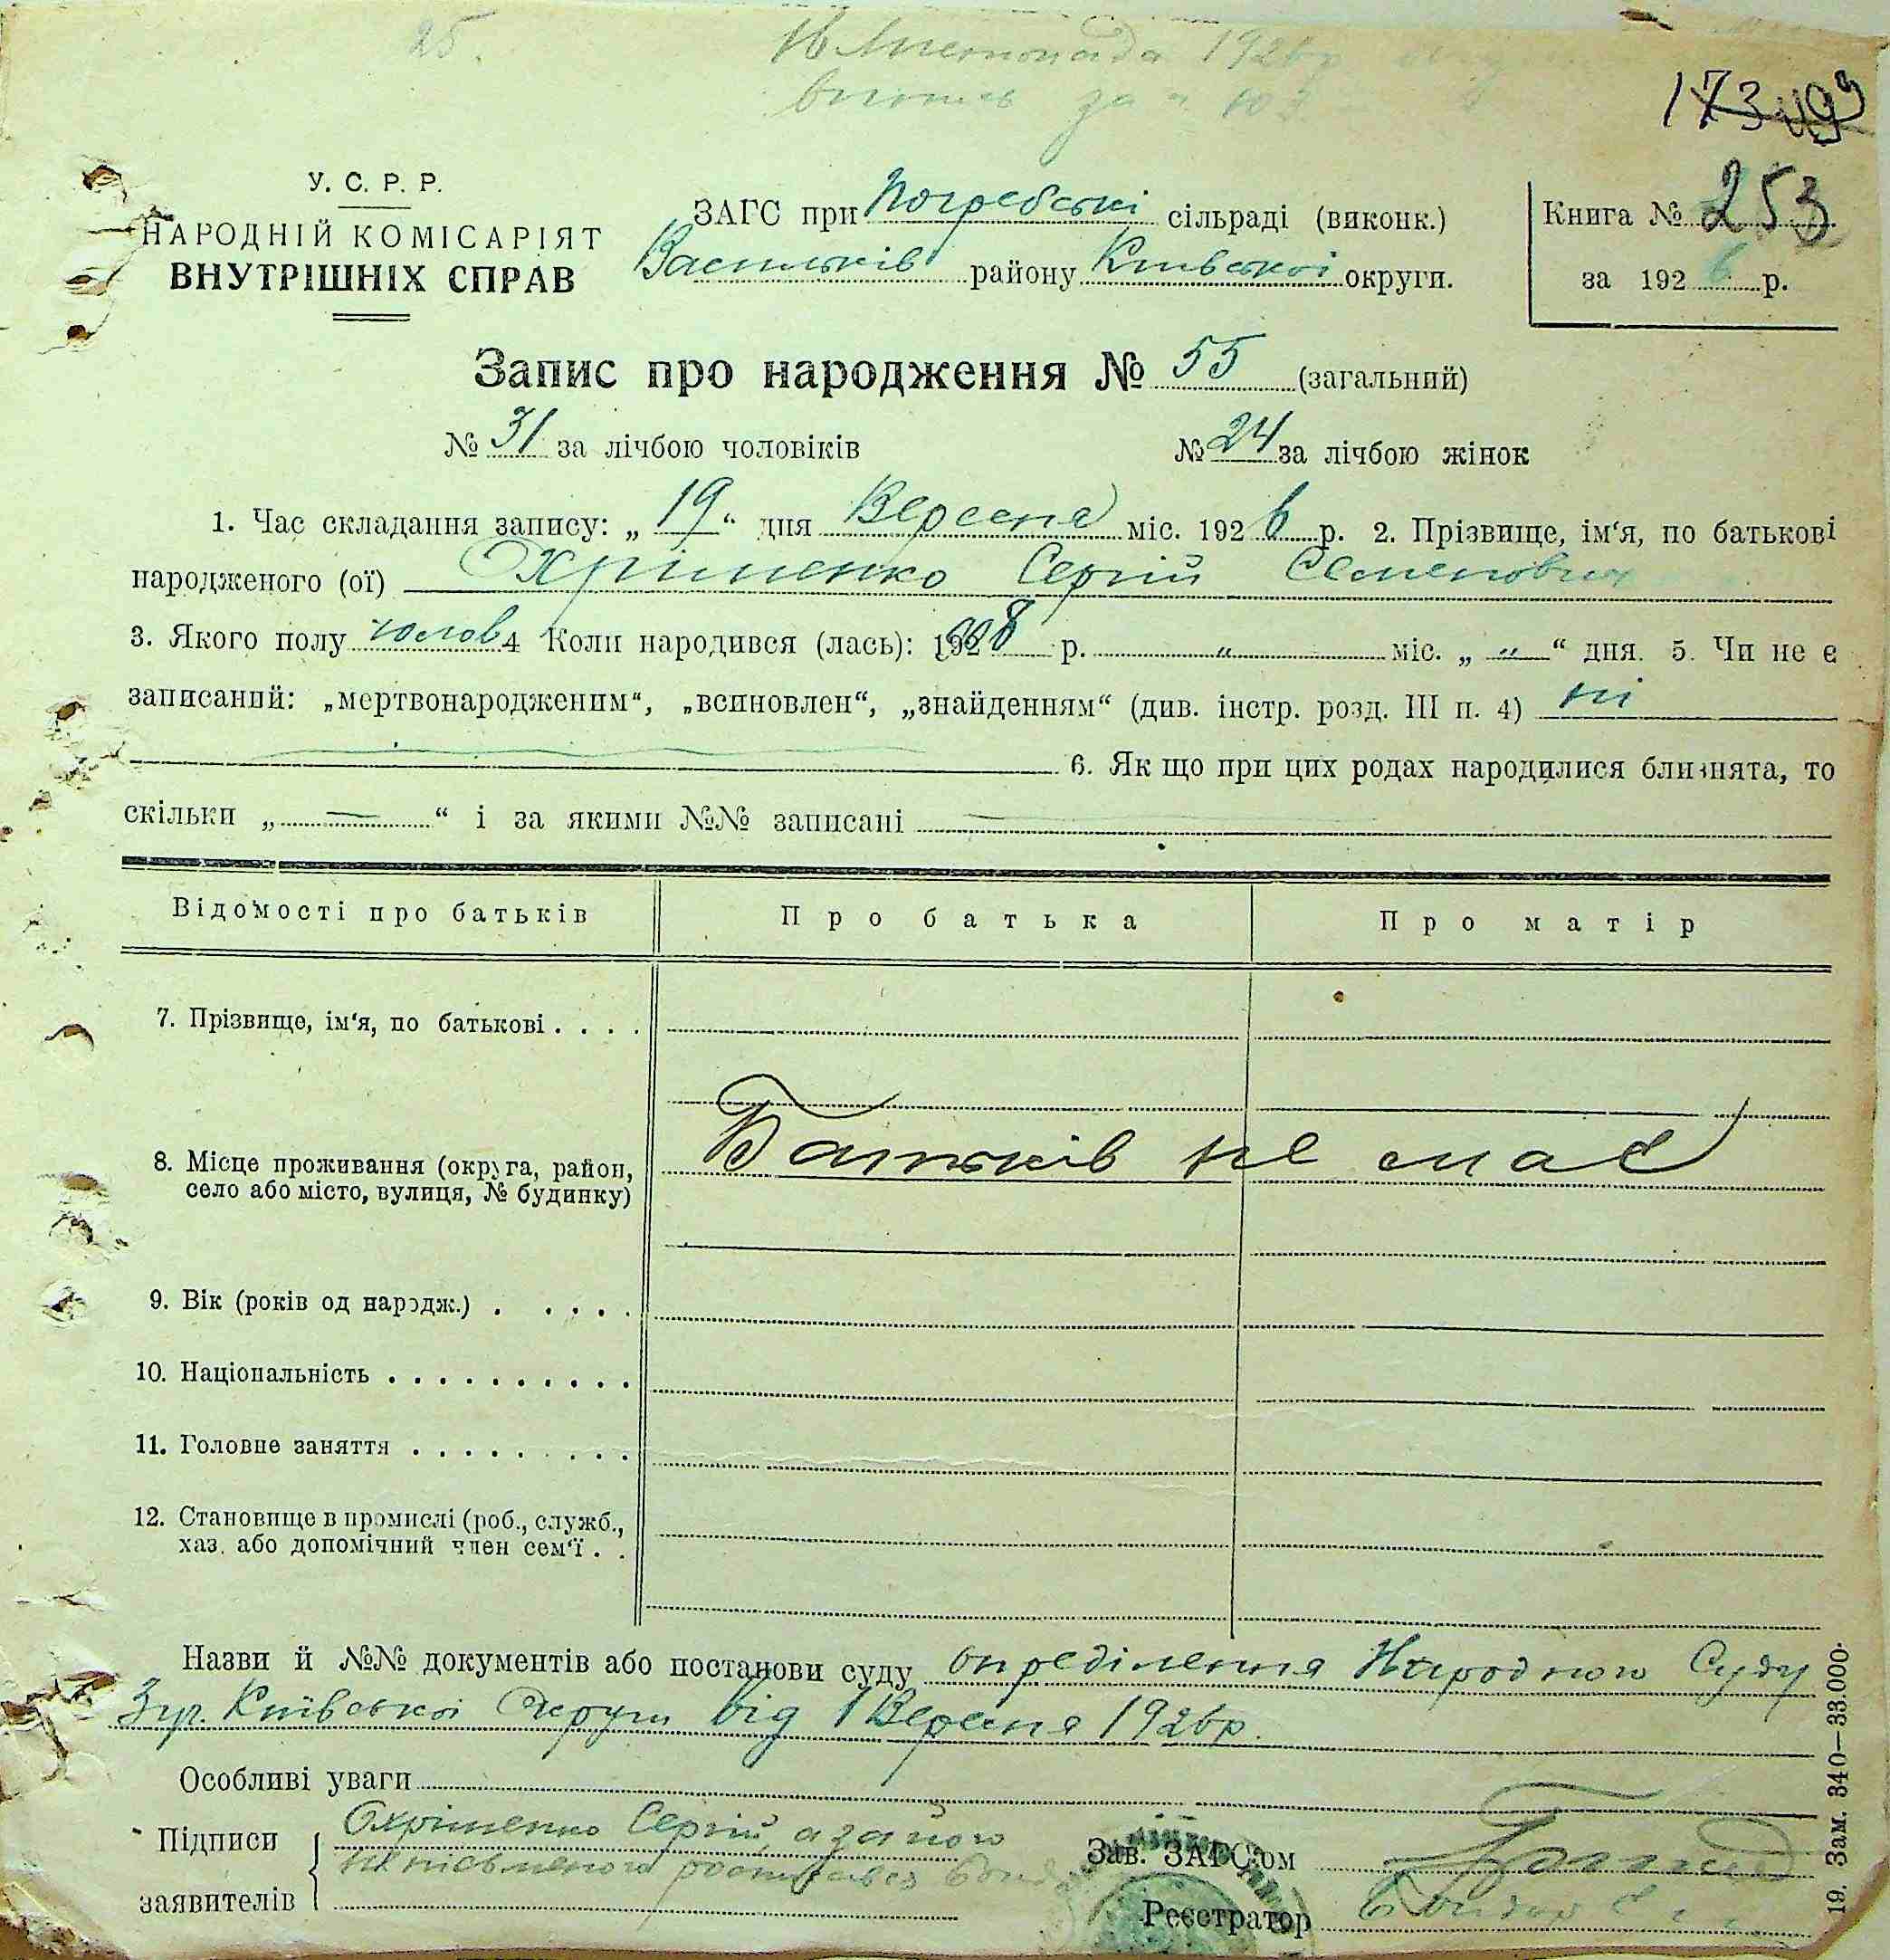 25.
16 Листопада 1926 р.
173
У. С. Р. Р.
НАРОДНІЙ КОМІСАРІЯТ
ВНУТРІШНІХ СПРАВ
ЗАГС при Погребські сільраді (виконк.)
Васильків району Київської округи.
Книга № 253
за 1926 р.
Запис про народження № 55 (загальний)
№ 31 за лічбою чоловіків № 24 за лічбою жінок
1. Час складання запису: „ 19 “ дня Вересеня міс. 1926 р. 2. Прізвище, ім‘я, по батькові
народженого (ої) Охріменко Сергій Семенович
3. Якого полу чолов 4 Коли народився (лась): 1908 р. „ міс. „ „ “ дня. 5. Чи не є
записаний: „мертвонародженим“, „всиновлен“, „знайденням“ (див. інстр. розд. III п. 4) ні
6. Як що при цих родах народилися близнята, то
скільки „ — “ і за якими №№ записані
Відомості про батьків Про батька Про матір
7. Прізвище, ім‘я, по батькові . . . .
Батьків не має
8. Місце проживання (округа, район,
село або місто, вулиця, № будинку)
9. Вік (років од народж.) . . . . .
10. Національність . . . . . . . . . .
11. Головне заняття . . . . . . . . .
12. Становище в промислі (роб., служб.,
хаз. або допомічний член сем‘ї . .
Назви й №№ документів або постанови суду опреділення Народного Суду
Київської Округи від 1 Вересня 1926 р.
Особливі уваги
Підписи
заявителів
Охріменко Сергій, а за його
неписьменого
Зав. ЗАГС‘ом
Реєстратор
19. Зам. 340—33.000.